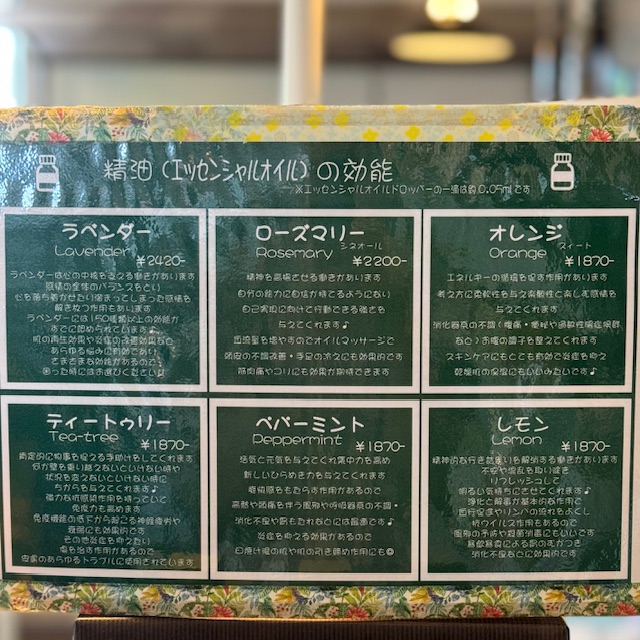 精油(エッセンシャルオイル)の効能
※エッセンシャルオイルドロッパーの一滴は約0.05mlです
ラベンダー
Lavender
¥2420-
ラベンダーは心の中核を支える働きがあります
感情の全体のバランスをとい
心を落ち着かせたい溜まってしまった感情を
解き放つ作用もあります
ラベンダーには150種類以上の効能が
すでに認められています♪
肌の再生効果や炎症の改善効果など
あらゆる悩みに有効であり
さまざまな効能があるので
困った時にはお選びください♪
ローズマリー
シネオール
Rosemary
¥2200-
精神を高揚させる働きがあります
自分の能力に自信が持てるようにない
自己実現に向けて行動できる強さを
与えてくれます♪
血流量を増やすのでオイルマッサージで
頭皮の不調改善・手足の冷えにも効果的です
筋肉痛やコリにも効果が期待できます
オレンジ
スィート
Orange
¥1870-
エネルギーの循環を促す作用があります
考え方に柔軟性を与え楽観性と楽しむ感情を
与えてくれます
消化器系の不調(腹痛・便秘や過敏性腸症候群
など)お腹の調子を整えてくれます
スキンケアにもとても有効で炎症を抑え
乾燥肌の保湿にもいいみたいです♪
ティートゥリー
Tea-tree
¥1870-
肯定的に物事を捉える手助けをしてくれます
何か壁を乗り越えないといけない時や
状況を変えないといけない時に
ちからを与えてくれます♪
強力な抗感染作用を持っていて
免疫力も高めます
免疫機能の低下から起こる神経疲労や
疲弊にも効果的です
その他炎症を抑えたい
傷を治す作用があるので
皮膚のあらゆるトラブルに使用されています
ペパーミント
Peppermint
¥1870-
活気と元気を与えてくれ集中力を高め
新しいひらめきの力を与えてくれます
爽快感をもたらす作用があるので
高熱や頭痛を伴う風邪や呼吸器系の不調・
消化不良や胃もたれなどには最適です♪
炎症を抑える効能があるので
日焼け後の肌や肌の引き締め作用にも◎
レモン
Lemon
¥1870-
精神的な行き詰まいを解消する働きがあります
不安や混乱を取い除き
リフレッシュして
明るい気持ちにさせてくれます♪
浄化と解毒が基本的な作用で
血行促進やリンパの流れをよくし
抗ウイルス作用もあるので
風邪の予防や殺菌消毒にもいいです
暴飲暴食による胃のむかつき
消化不良などに効果的です